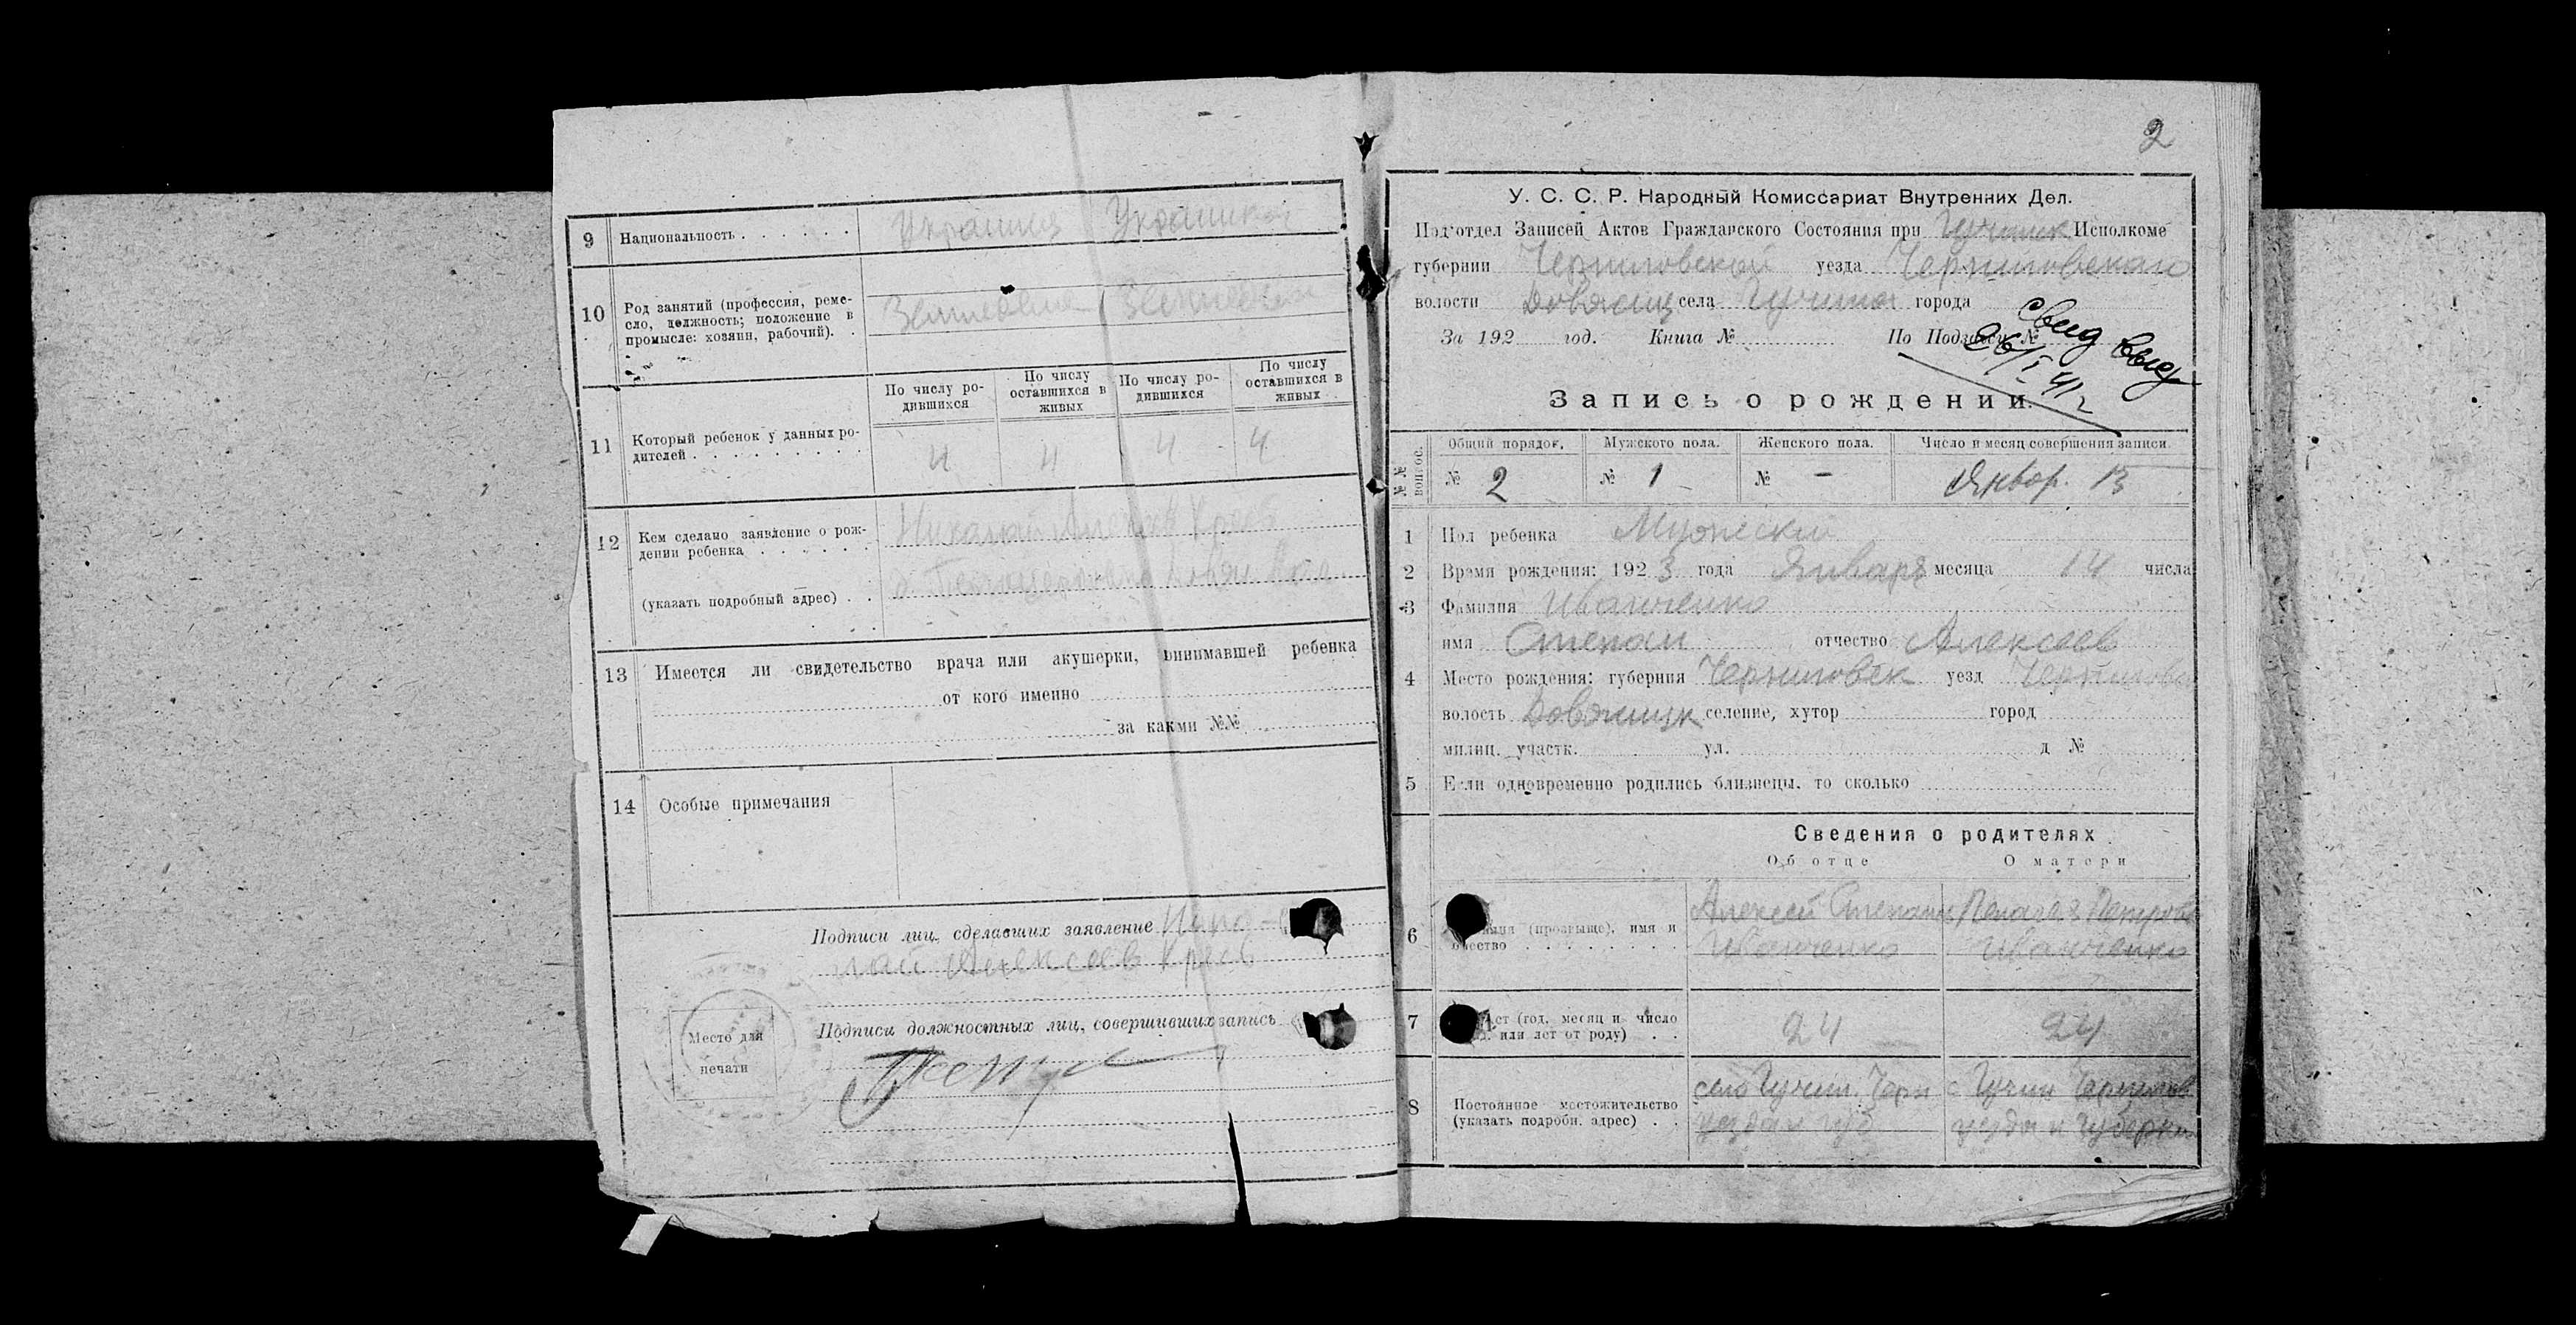 9 Национальность Украинка
10 Род занятий (профессия, реме-
сло, должность; положение в
промысле: хозяин, рабочий).
11 Который ребенок у данных ро-
дителей
По числу ро-
дившихся
По числу
оставшихся в
живых
По числу ро-
дившихся
По числу
оставшихся в
живых
4 4 4 4
12 Кем сделано заявление о рож-
дении ребенка
(указать подробный адрес)
13 Имеется ли свидетельство врача или акушерки, принимавшей ребенка
от кого именно
за какми №№
14 Особые примечания
Подписи лиц, сделавших заявление Нико-
лай Алексеев
Подписи должностных лиц, совершивших запись
Место для
печати
2
У. С. С. Р. Народный Комиссариат Внутренних Дел.
Под'отдел Записей Актов Гражданского Состояния при Исполкоме
губернии Черниговской уезда Черниговского
волости села города
За 192 год. Книга № По Подзаписи №
Свид выд
26/I 41
Запись о рождении.
№№ вопрос.
Общий порядок. Мужского пола. Женского пола. Число и месяц совершения записи.
№ 2 № 1 № – Январ. 15
1 Пол ребенка Мужеский
2 Время рождения: 1923 года Января месяца 14 числа
3 Фамилия Иванченко
имя Степан отчество Алексеев
4 Место рождения: губерния Черниговск уезд
волость селение, хутор город
милиц. участк. ул. д №
5 Если одновременно родились близнецы, то сколько
Сведения о родителях
Об отце О матери
6 (прозвище), имя и
Алексей Степанов Пелагея Петрова
Иванченко Иванченко
7 (год, месяц и число
или лет от роду) 24 24
8 Постоянное местожительство
(указать подробн. адрес)
село Гучин. Черн с Гучин Чернигов
уезда и губ. уезда и Губернии